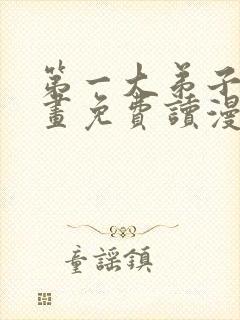 第一大弟子
畫免費讀漫
童謠鎮